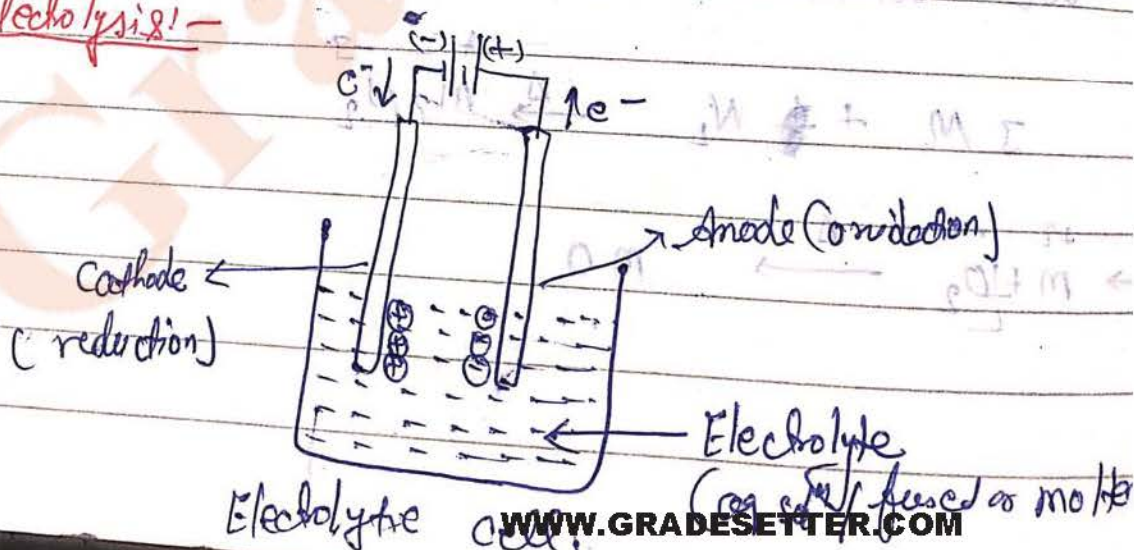 Electrolysis:-
(-) (+)
e⁻ ↓ ↑ e⁻
Anode (oxidation)
Cathode
(reduction)
⊕ ⊖
⊕ ⊖
⊕ ⊖
Electrolyte
(aq solⁿ / fused or molten
Electrolytic cell.
WWW.GRADESETTER.COM